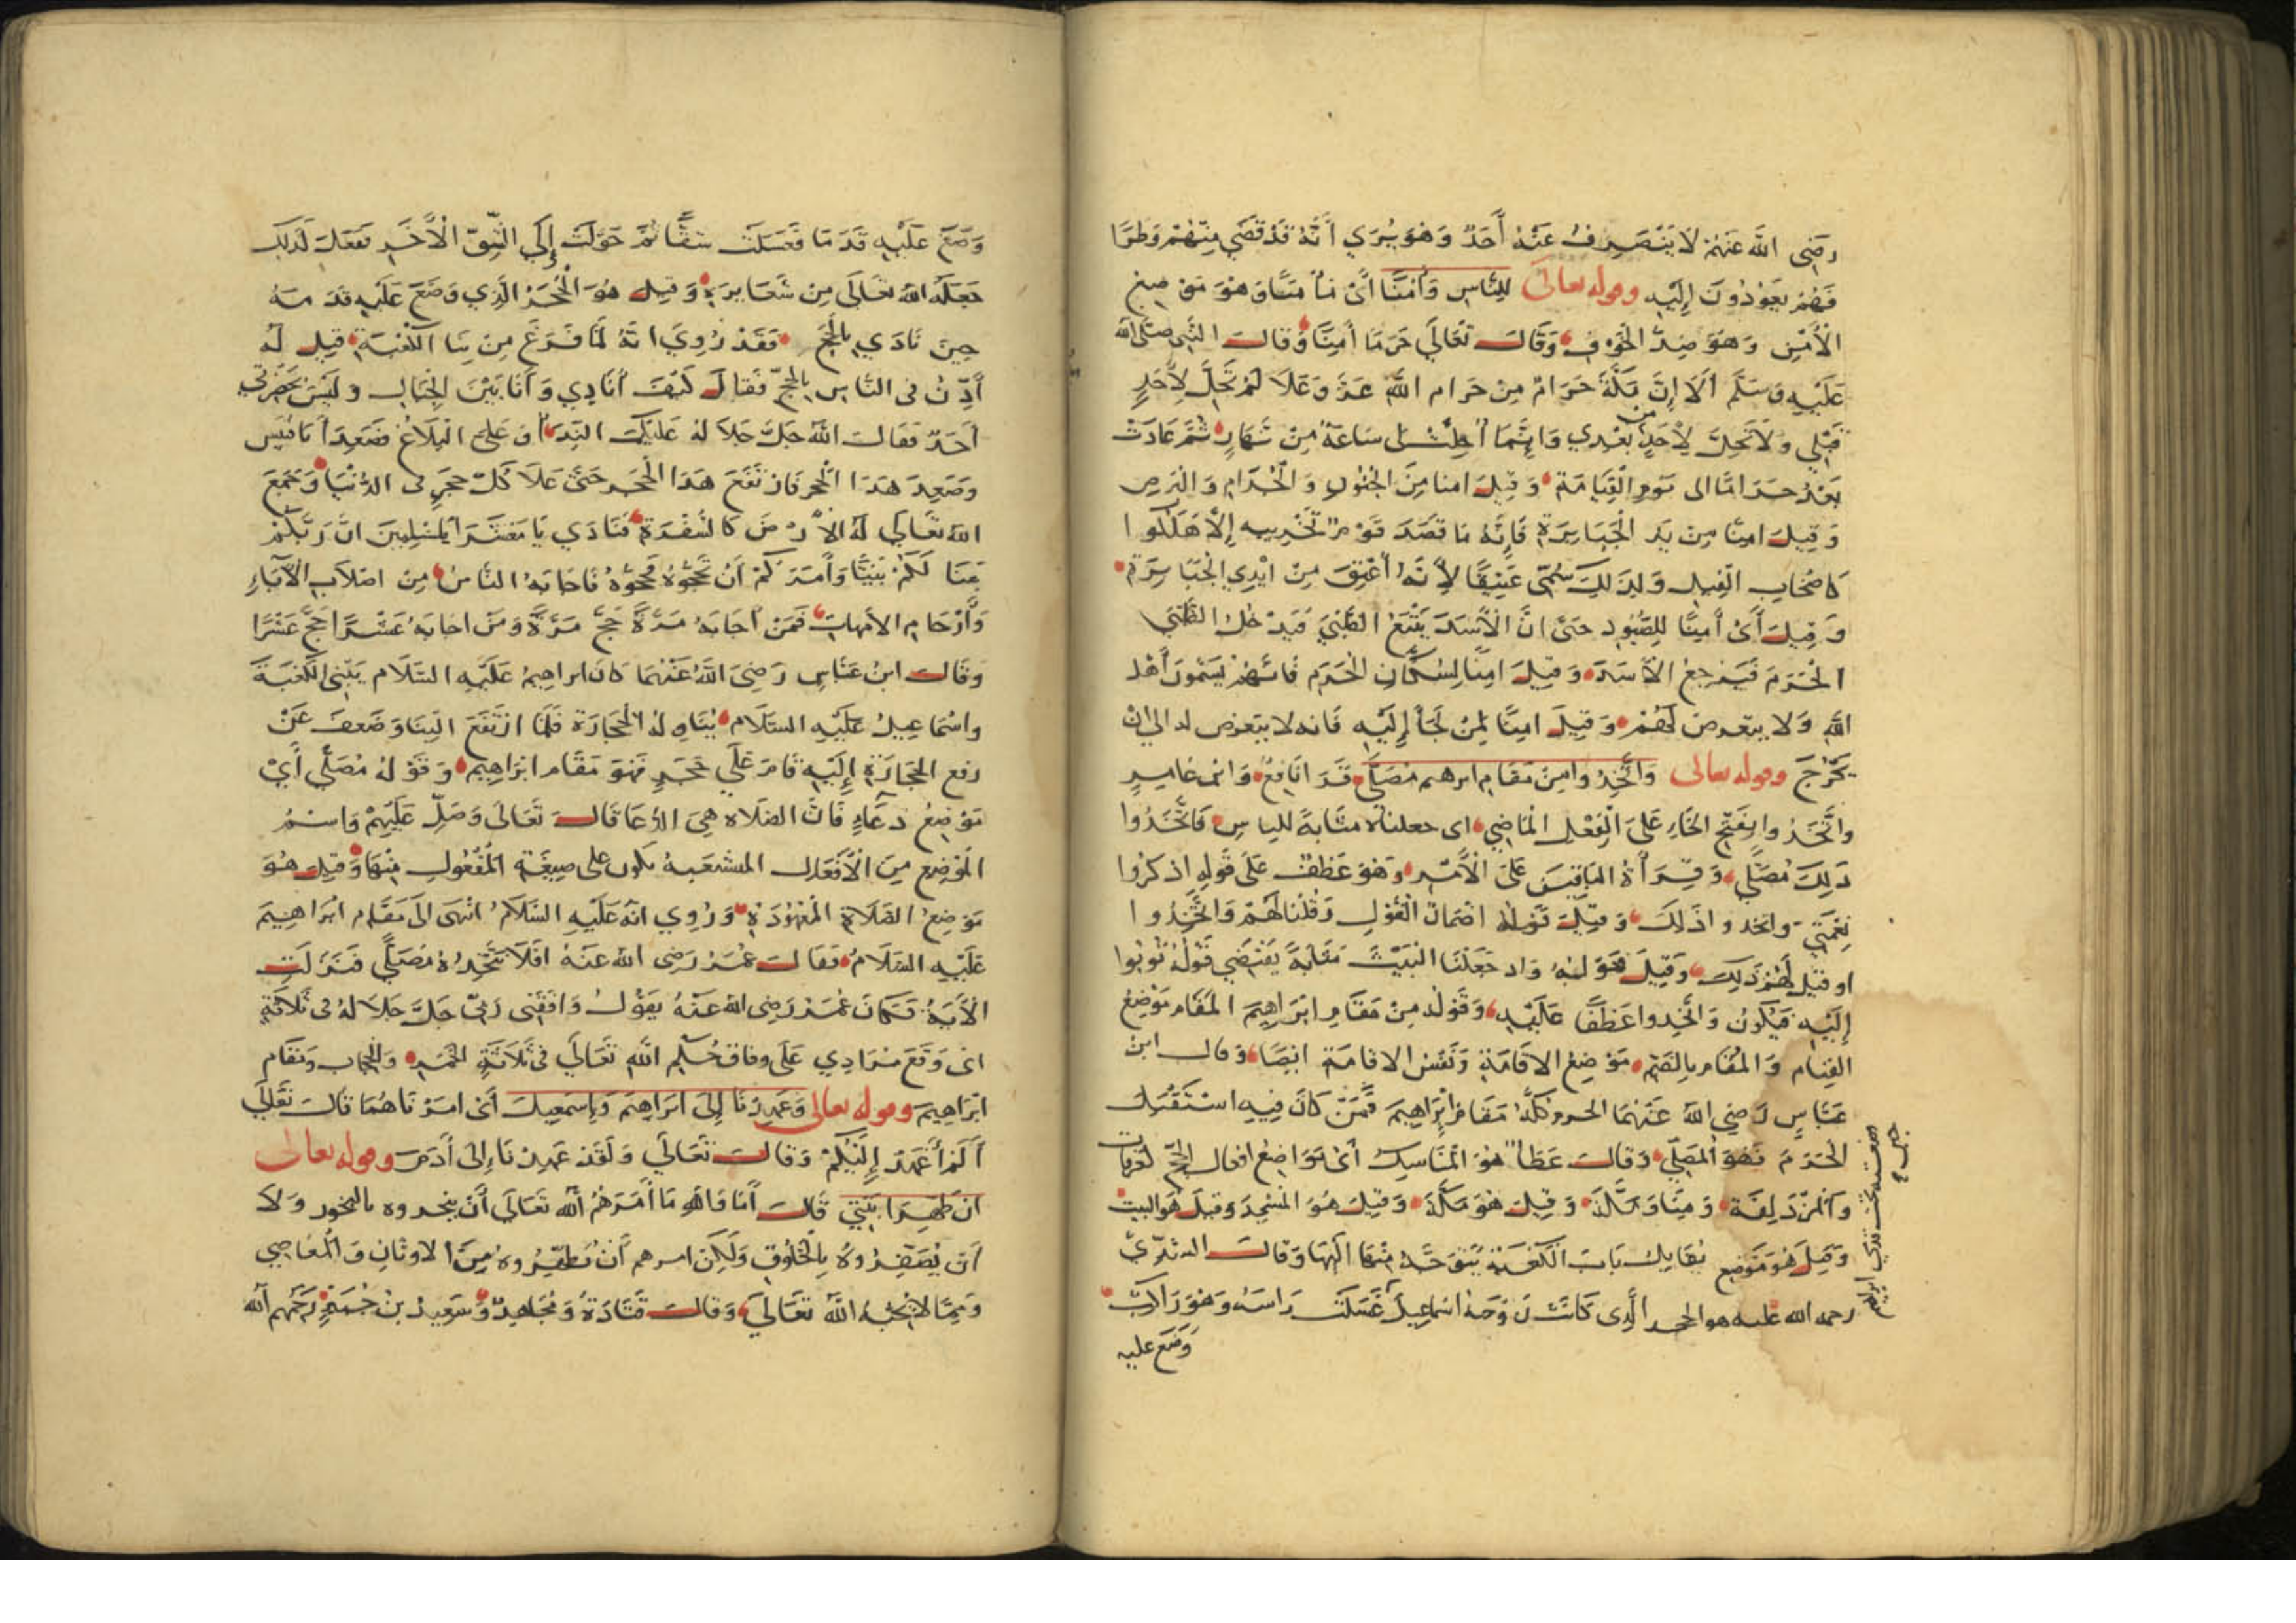 رضى الله عنهم لا ينصرف عنه أحد وهو يرى أنه قد قضى منهم وطرا
فهم يعودون إليه وقوله تعالى للناس وأمنا أي مأمنا وهو موضع
الأمن وهو ضد الخوف وقال تعالى حرما آمنا وقال النبي صلى الله
عليه وسلم ألا إن مكة حرام من حرام الله عز وعلا لم تحل لأحد
قبلي ولا تحل لأحد من بعدي وإنما أحلت لي ساعة من نهار ثم عادت
بعد حراما الى يوم القيامة وقيل امنا من الجنون والجذام والبرص
وقيل امنا من يد الجبابرة فإنه ما قصد قوم تخريبه إلا هلكوا
كاصحاب الفيل ولذلك سمي عتيقا لأنه أعتق من ايدي الجبابرة
وقيل أي أمنا للصيود حتى ان الأسد يتبع الظبي فيدخل الظبي
الحرم فيرجع الأسد وقيل امنا لسكان الحرم فانهم يسمون أهل
الله ولا يتعرض لهم وقيل امنا لمن لجأ إليه فانه لا يتعرض له الى ان
يخرج وقوله تعالى واتخذوا من مقام ابرهيم مصلى قرا نافع وابن عامر
واتخذوا بفتح الخاء على الفعل الماضي اى جعلناه مثابة للناس فاتخذوا
ذلك مصلى وقرأه الباقين على الأمر وهو عطف على قوله اذكروا
نعمتي واتخذوا ذلك وقيل قوله اضمار القول وقلنا لهم واتخذوا
او قيل لهم ذلك وقيل قوله واذ جعلنا البيت مثابة يقتضي قوله ثوبوا
إليه فيكون واتخذوا عطفا عليه وقوله من مقام ابراهيم المقام موضع
القيام والمقام بالضم موضع الاقامة ونفس الاقامة ايضا وقال ابن
عباس رضي الله عنهما الحرم كله مقام إبراهيم فمن كان فيه استقبل
الحرم فهو المصلى وقال عطا هو المناسك أي مواضع افعال الحج كعرفات
والمزدلفة ومنا ومكة وقيل هو مكة وقيل هو المسجد وقيل هو البيت
وقيل هو موضع يقابل باب الكعبة يتوجه منها اليها وقال السدي
رحمه الله عليه هو الحجر الذى كانت زوجة اسماعيل غسلت راسه وهو راكب
وضع عليه
وضع عليه قدما فغسلت شقا ثم حولت إلى الشق الأخر ففعل كذلك
جعله الله تعالى من شعايره وقيل هو الحجر الذي وضع عليه قدمه
حين نادى بالحج فقد روي انه لما فرغ من بنا الكعبة قيل له
أذن فى الناس بالحج فقال كيف أنادي وأنا بين الجبال وليس بحضرتي
أحد فقال الله جل جلاله عليك النداء وعلي البلاغ فصعد أبا قبيس
وصعد هذا الحجر فارتفع هذا الحجر حتى علا كل حجر فى الدنيا وجمع
الله تعالى له الأرض كالسفرة فنادى يا معشر المسلمين ان ربكم
بنا لكم بيتا وأمركم أن تحجوه فحجوه فاجابه الناس من اصلاب الآباء
وأرحام الامهات فمن أجابه مرة حج مرة ومن اجابه عشرا حج عشرا
وقال ابن عباس رضى الله عنهما كان ابراهيم عليه السلام يبني الكعبة
واسماعيل عليه السلام يناوله الحجارة فلما ارتفع البنا وضعف عن
رفع الحجارة إليه قام على حجر فهو مقام ابراهيم وقوله مصلى أي
موضع دعاء فان الصلاه هي الدعا قال تعالى وصل عليهم واسم
الموضع من الأفعال المتشعبة يكون على صيغة المفعول منها وقيل هو
موضع الصلاة المعهودة وروي انه عليه السلام انتهى الى مقام ابراهيم
عليه السلام فقال عمر رضى الله عنه افلا نتخذه مصلى فنزلت
الأية فكان عمر رضى الله عنه يقول وافقنى ربي جل جلاله فى ثلاثة
اى وقع مرادي على وفاق حكم الله تعالى فى ثلاثة الخمر والحجاب ومقام
ابراهيم وقوله تعالى وعهدنا إلى ابراهيم وإسمعيل أى امرناهما قال تعالى
ألم أعهد إليكم وقال تعالى ولقد عهدنا إلى أدم وقوله تعالى
ان طهرا بيتي قال أما والله ما أمرهم الله تعالى أن يبخروه بالبخور ولا
أن يصفروه بالخلوق ولكن امرهم أن يطهروه من الاوثان والمعاصي
ومما لا يحبه الله تعالى وقال قتادة ومجاهد وسعيد بن جبير رحمهم الله